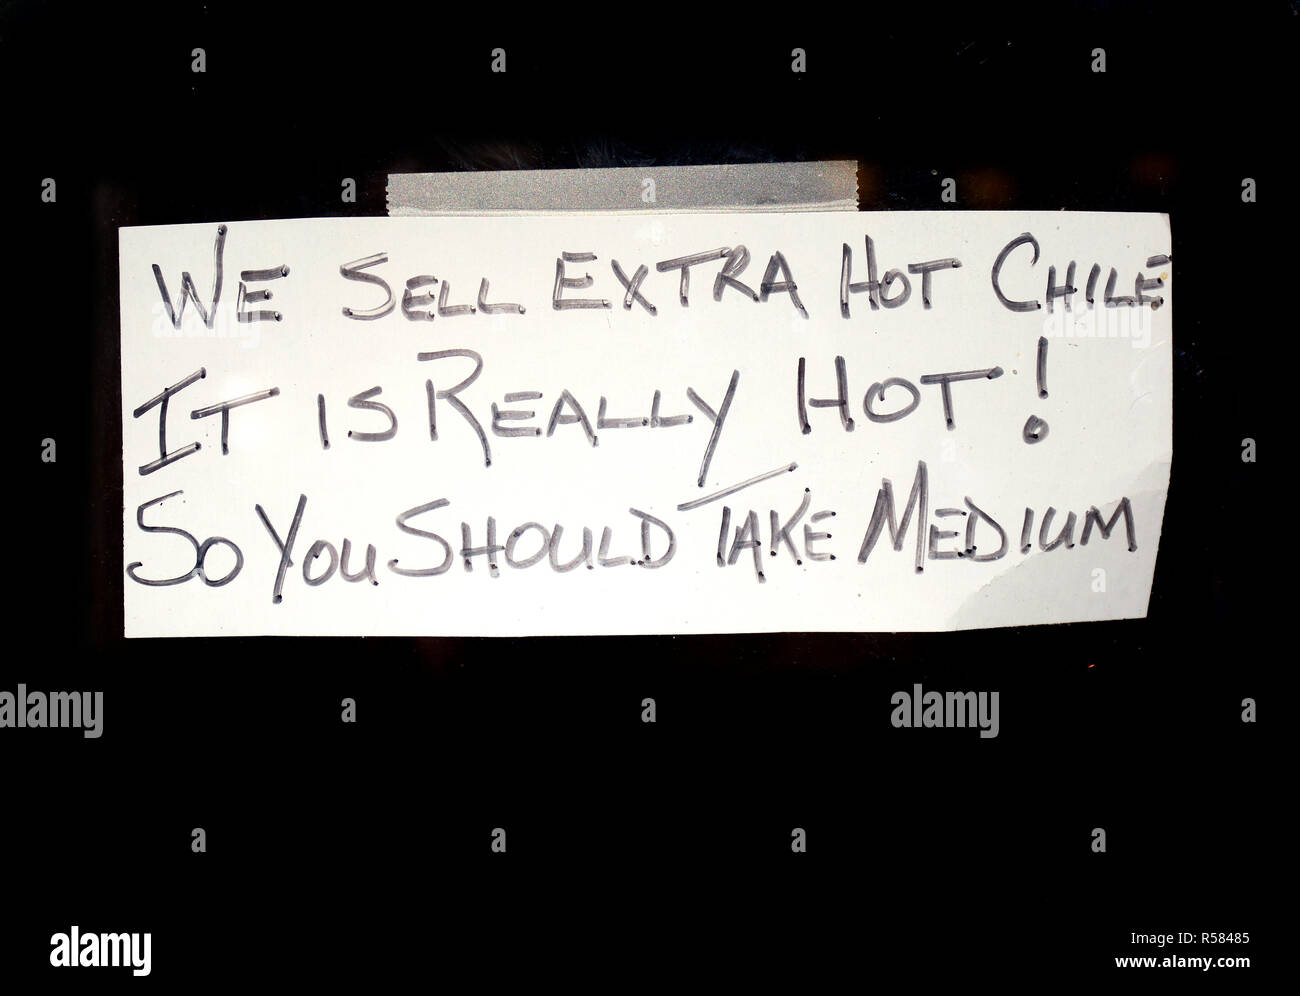 WE SELL EXTRA HOT CHILE
IT IS REALLY HOT!
SO YOU SHOULD TAKE MEDIUM
a a a a
a a a a a
a a
alamy a a alamy a
a a a a
alamy
Image ID: R58485
www.alamy.com